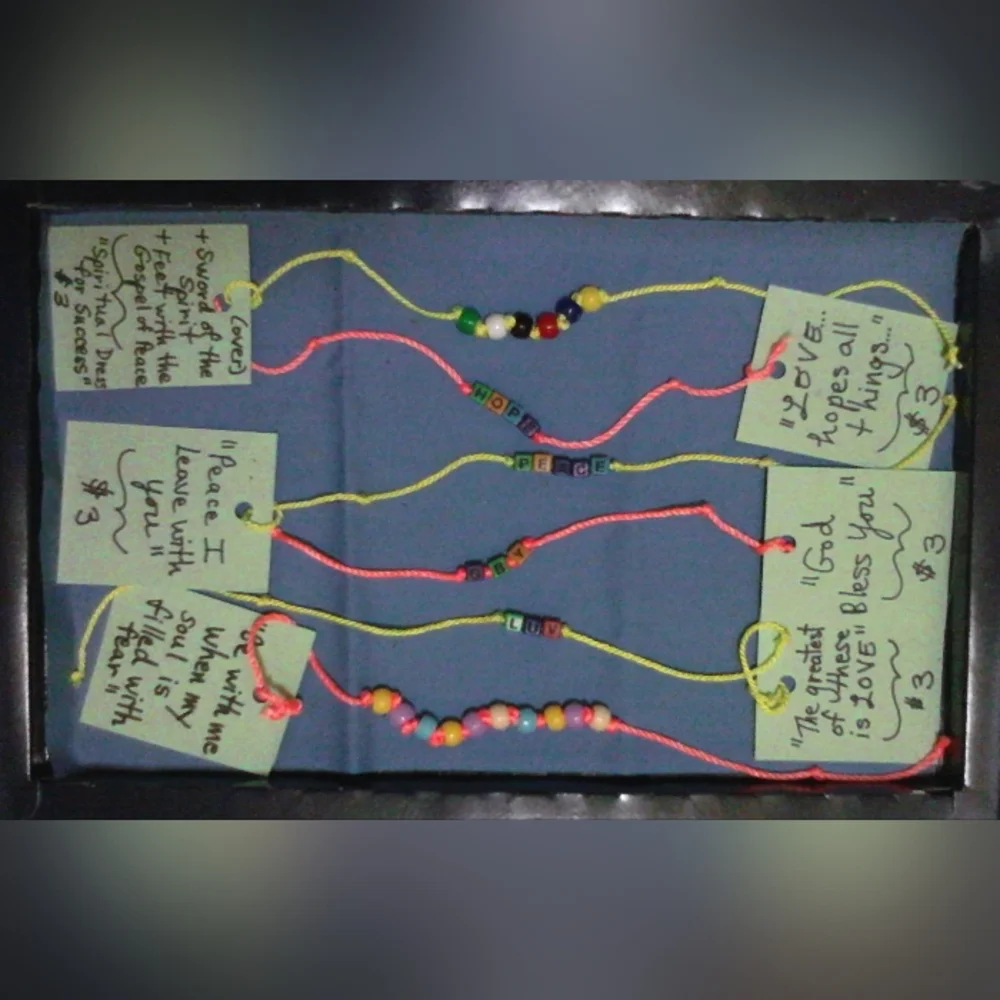 (over)
+ Sword of the
Spirit
+ Feet with the
Gospel of Peace
"Spiritual Dress
for Success"
$3
"LOVE...
hopes all
things..."
$3
HOPE
"Peace I
leave with
you"
$3
PEACE
"God
Bless You"
$3
GBY
"Be with me
when my
soul is
filled with
fear"
LUV
"The greatest
of these
is LOVE"
$3